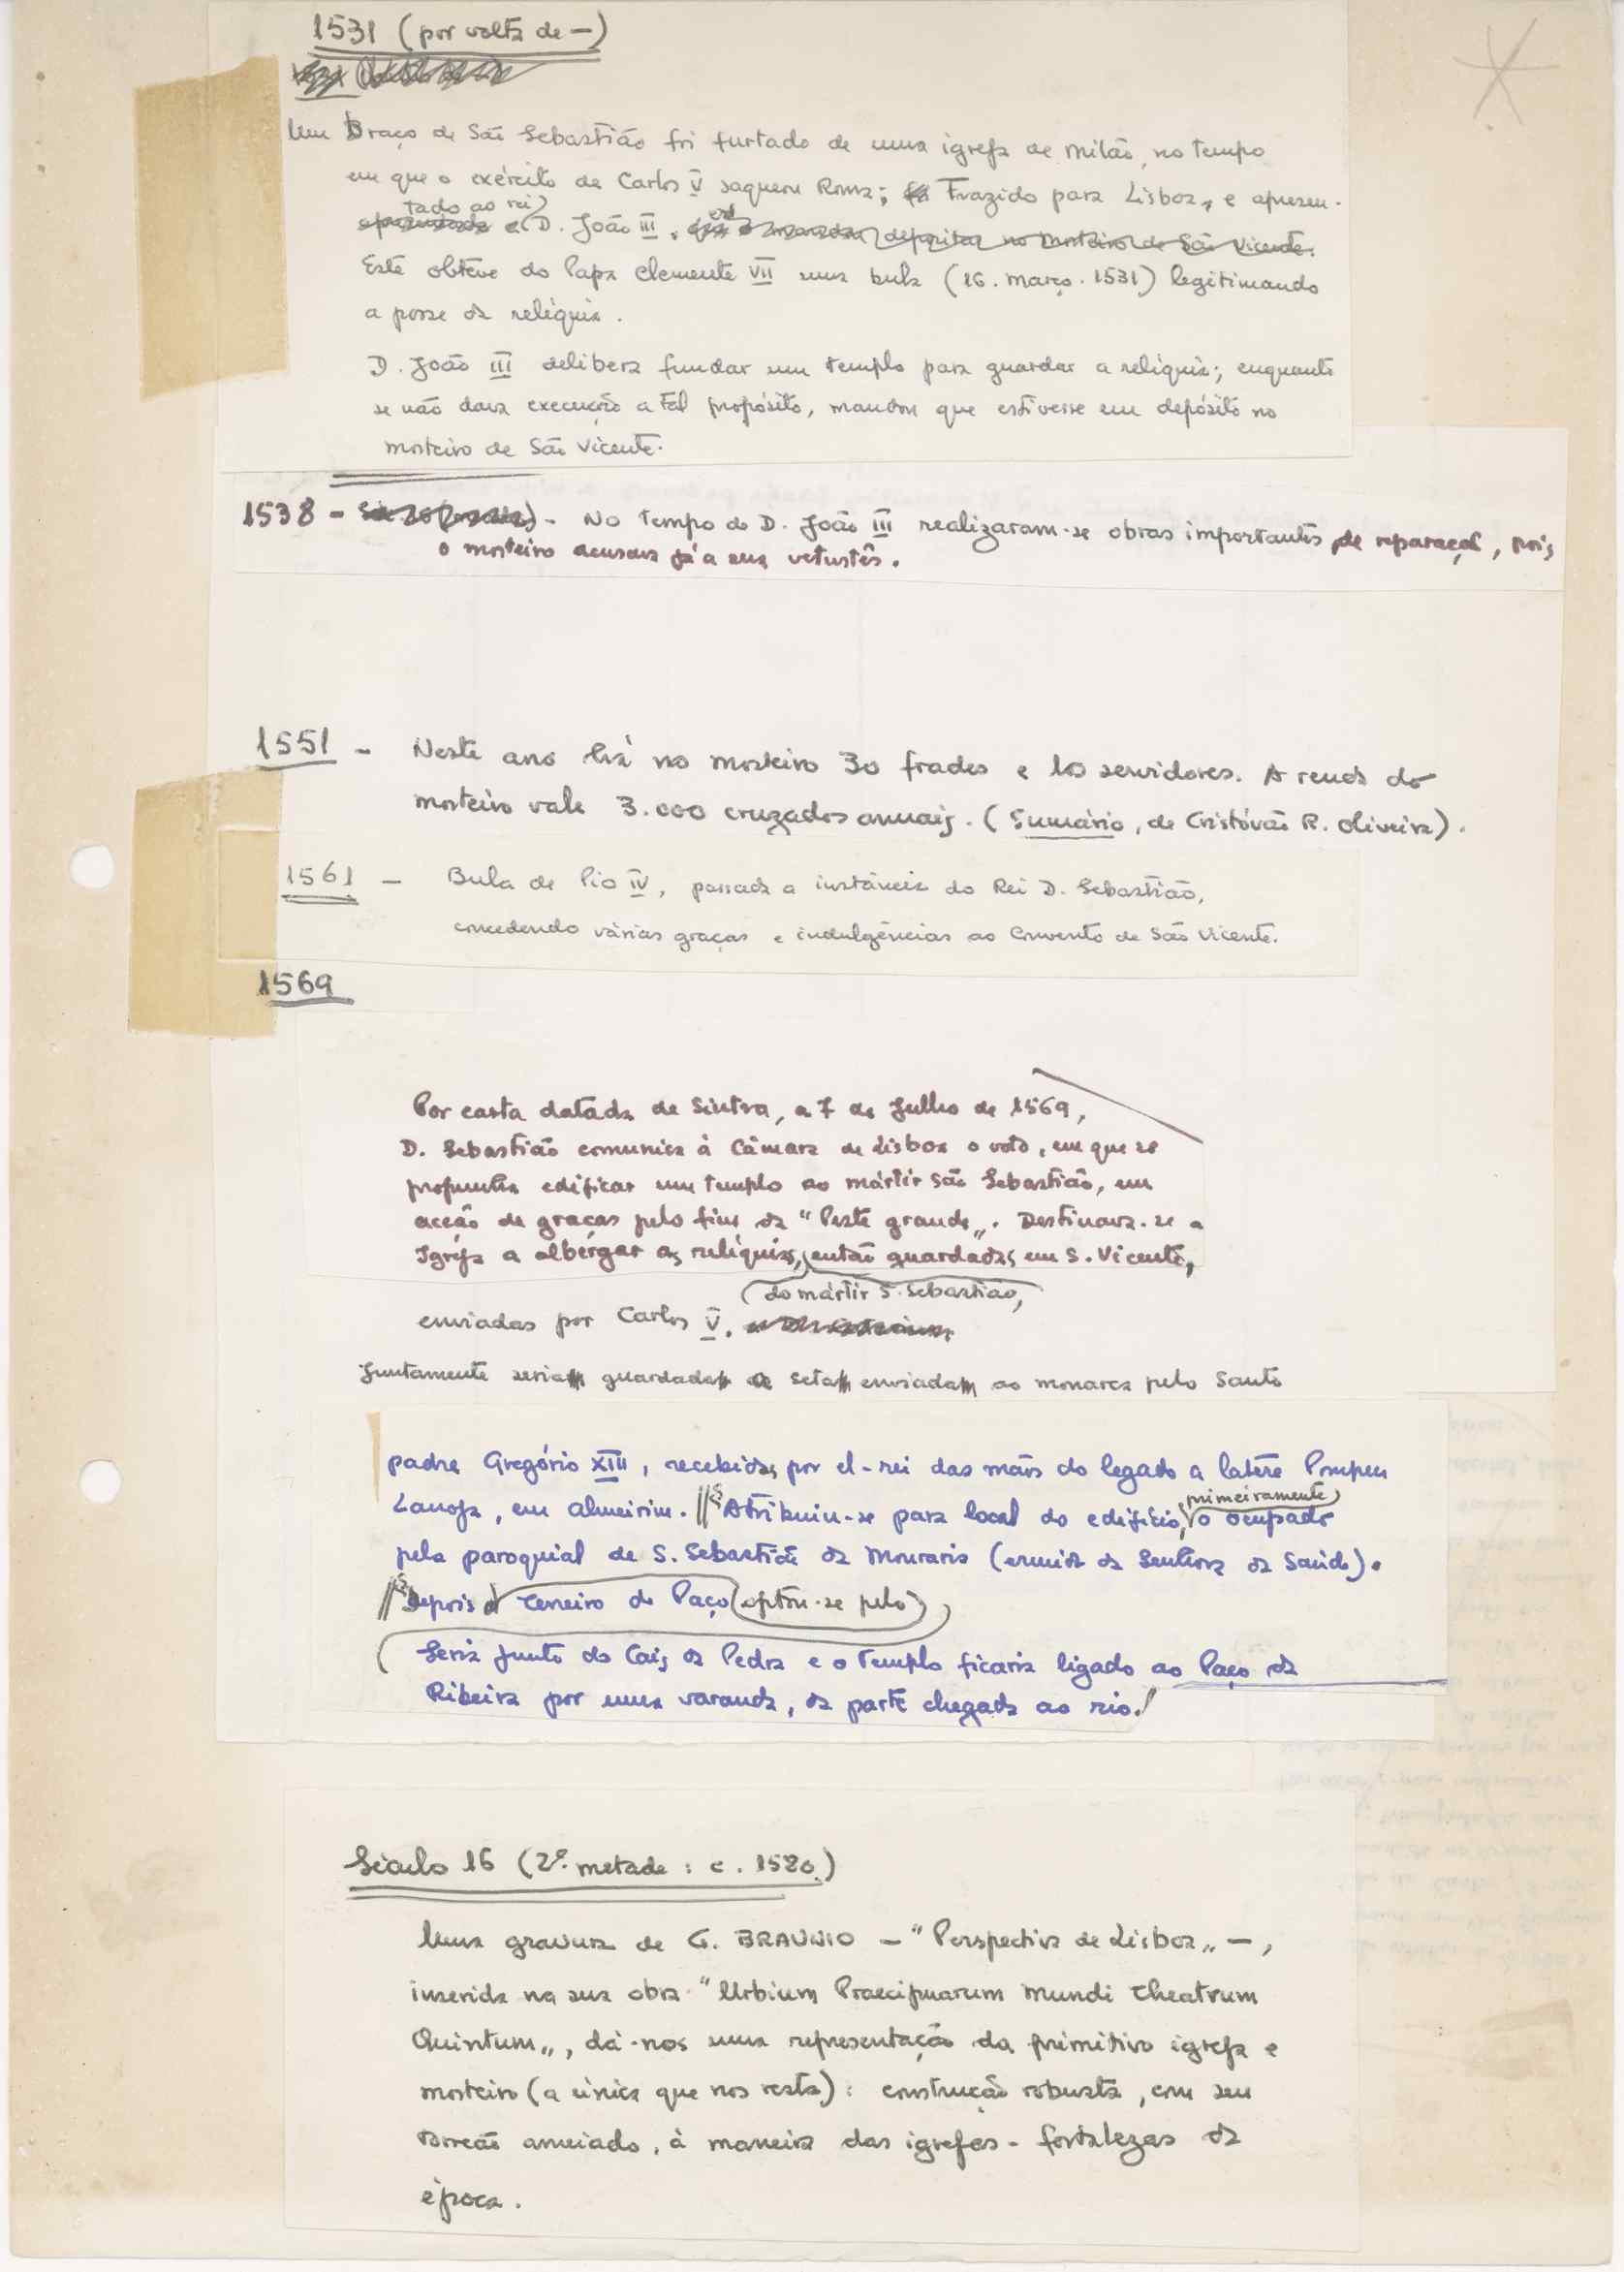 1531 (por volta de —)
Um Braço de São Sebastião foi furtado de uma igreja de Milão, no tempo
em que o exército de Carlos V saqueou Roma; Trazido para Lisboa, e apresen-
tado ao rei
D. João III.
depositar no mosteiro de São Vicente.
Este obteve do Papa Clemente VII uma bula (16. março. 1531) legitimando
a posse da relíquia.
D. João III delibera fundar um templo para guardar a relíquia; enquanto
se não dava execução a tal propósito, mandou que estivesse em depósito no
mosteiro de São Vicente.
1538 - - No tempo de D. João III realizaram-se obras importantes, de reparação, pois
o mosteiro acusava já a sua vetustês.
1551 - Neste ano há no mosteiro 30 frades e 10 servidores. A renda do
mosteiro vale 3.000 cruzados anuais. (Sumário, de Cristóvão R. Oliveira).
1561 — Bula de Pio IV, passada a instância do Rei D. Sebastião,
concedendo várias graças e indulgências ao Convento de São Vicente.
1569
Por carta datada de Sintra, a 7 de Julho de 1569,
D. Sebastião comunica à Câmara de Lisboa o voto, em que se
propunha edificar um templo ao mártir São Sebastião, em
acção de graças pelo fim da "Peste grande". Destinava-se a
Igreja a albergar as relíquias, então guardadas em S. Vicente,
do mártir S. Sebastião,
enviadas por Carlos V.
Juntamente seria guardada a seta enviada ao monarca pelo Santo
padre Gregório XIII, recebida, por el-rei das mãos do legado a latere Pompeu
Lanoja, em Almeirim. // § Atribuiu-se para local do edifício, primeiramente o ocupado
pela paroquial de S. Sebastião da Mouraria (ermida da Senhora da Saúde).
// § Depois o Terreiro do Paço (optou-se pelo)
Seria junto do Cais da Pedra e o Templo ficaria ligado ao Paço da
Ribeira por uma varanda, da parte chegada ao rio.
Século 16 (2ª. metade: c. 1580.)
Uma gravura de G. BRAUNIO — "Perspectiva de Lisboa" —,
inserida na sua obra "Urbium Praecipuarum Mundi Theatrum
Quintum", dá-nos uma representação da primitiva igreja e
mosteiro (a única que nos resta): construção robusta, com seu
torreão ameiado, à maneira das igrejas-fortalezas da
época.